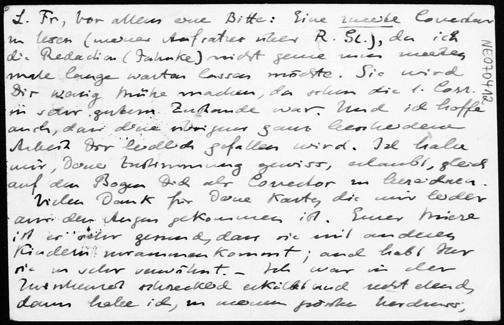 L. Fr, vor allem eine Bitte: Eine zweite Correctur
zu lesen (meines Aufsatzes über R. St.), da ich
die Redaction (Jahnke) nicht gerne
lange warten lassen möchte. Sie wird
Dir wenig Mühe machen, da schon die 1. Corr.
in sehr gutem Zustande war. Und ich hoffe
auch, dass diese übrigens ganz bescheidene
Arbeit Dir leidlich gefallen wird. Ich habe
mir, Deine Zustimmung gewiss, erlaubt, gleich
auf den Bogen Dich als Corrector zu bezeichnen.
Vielen Dank für Deine Karte, die mir leider
aus den Augen gekommen ist. Eurer
ist es sehr gesund, dass sie mit anderen
Kindern zusammenkommt; und habt Ihr
sie zu sehr verwöhnt. – Ich war in der
Zwischenzeit schrecklich erkältet und
dann habe ich, zu meinem grossen
NE070412